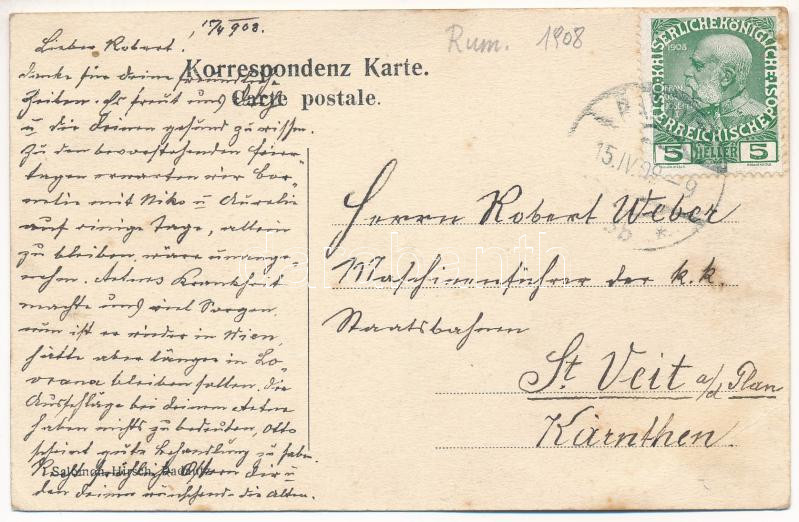 17/4 908.
Rum. 1908
Lieber Robert.
Danke für deine freundlich.
Zeilen. Es freut uns Euch
u die deinen gesund zu wissen.
Zu den bevorstehenden Feier-
tagen erwarten wir Cor-
nelie mit Niko u Aurelie
auf einige Tage, allein
zu bleiben, wäre unange-
nehm. Krankheit
machte uns viel Sorgen,
nun ist er wieder in Wien,
hätte aber länger in Lo-
vrana bleiben sollen. Die
Ausschläge bei deinem
haben nichts zu bedeuten, Otto
scheint gute Behandlung zu haben.
Ostern dir u
den deinen wünschend die Alten.
Korrespondenz Karte.
Carte postale.
KAISERLICHE KÖNIGLICHE
ÖSTERREICHISCHE POST
1908
5 HELLER 5
15.IV.08-9
Herrn Robert Weber
Maschinenführer der k.k.
Staatsbahnen
St. Veit a/d Glan
Kärnthen.
Salomon Hirsch, Radautz
darabanth.com